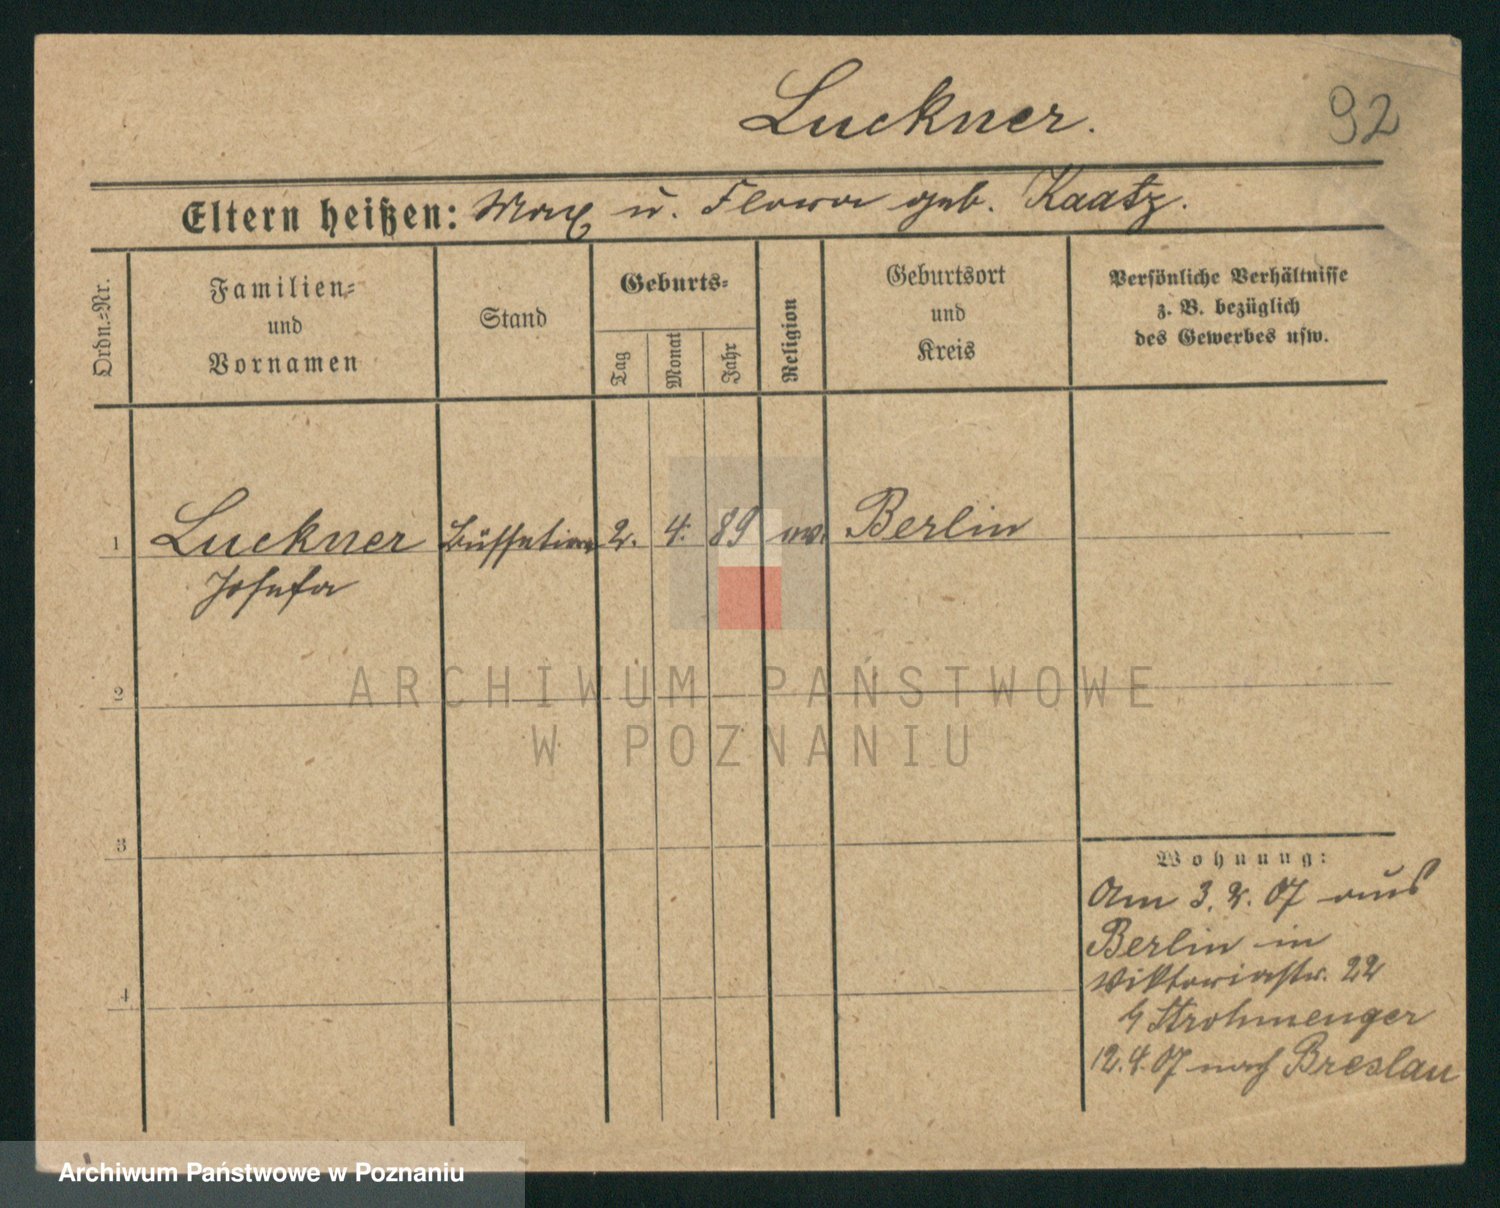 Luckner.
92
Eltern heißen: Max u. Flora geb. Kaatz.
Ordn.-Nr.
Familien-
und
Vornamen
Stand
Geburts-
Tag
Monat
Jahr
Religion
Geburtsort
und
Kreis
Persönliche Verhältnisse
z. B. bezüglich
des Gewerbes usw.
1 Luckner Büffetiere 2. 4. 89 ev. Berlin
Josefa
2
3
4
Wohnung:
Am 3. 2. 07 aus
Berlin in
Viktoriastr. 22
Strohmenger
12. 4. 07 nach Breslau
ARCHIWUM PAŃSTWOWE
W POZNANIU
Archiwum Państwowe w Poznaniu